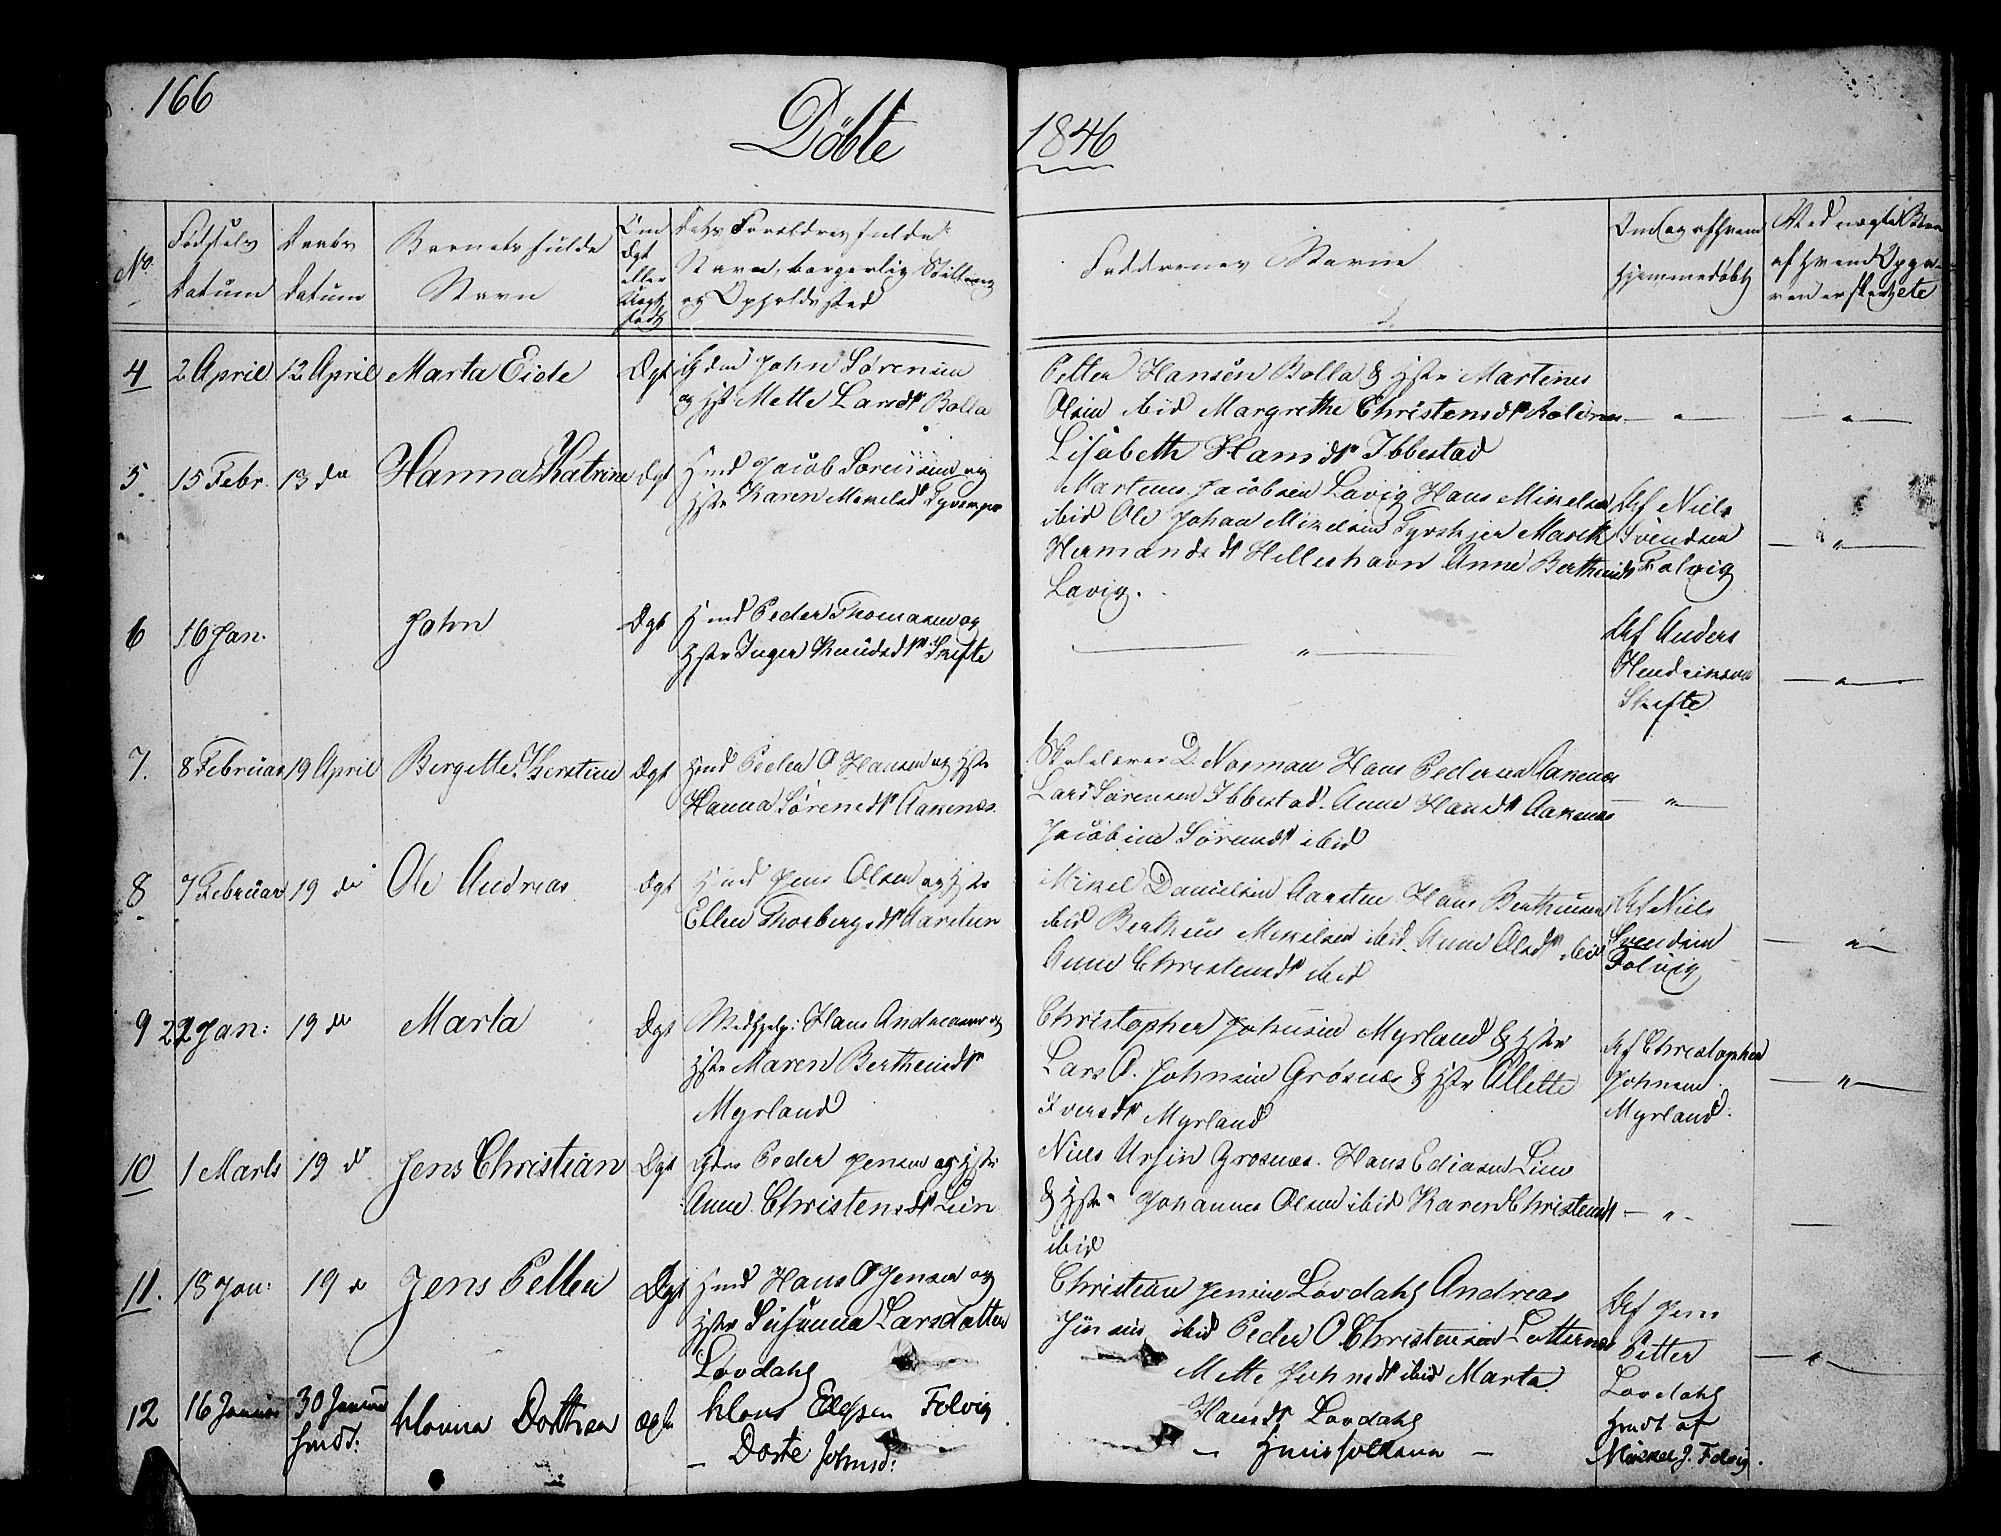 166
Döbte
1846
No
Födsels Datum
Daabs Datum
Barnets fulde Navn
Om Ægt eller Uægt födt
Dets Foreldres fulde
Navn, borgerlig Stilling
og Opholdssted
Faddrenes Navne
Om og af hvem
hjemmedöbt
4 2 April 12 April Marta Eide Ægt Gdm John Sörensen
og Hst Mette Larsdtr Bolla
Petter Hansen Bolla & Hstr Martines
Olsen ibid Margrethe Christensdtr Roldnes - " - - " -
Lisabeth Hansdtr Ibbestad
5. 15 Febr. 13 do Hanna Katrine Ægt Hmd Jacob Sörensen og
Hstr Karen Mikelsdtr
Martinus Jacobsen Lavig Hans Mikelsen
ibid Ole Johan Mikelsen
Hermandsdtr Helleshavn Anne Berthensdtr
Lavig.
Af Niels
Svendsen
Folvig
- " -
6 16 Jan. John Ægt Hmd Peder Thomassen og
Hstr Inger Knudsdtr Skefte
- " -
Af Anders
Hendriksen
Skefte
- " -
7. 8 Februar 19 April Bergette Kerstine Ægt Hmd Peder O Hansen og Hstr
Hanna Sörensdtr Aakenes.
Skolelærer D. Norman Hans Pedersen Aakenes
Lars Sörensen Ibbestad. Anne Hansdtr Aakenes
Jacobine Sörensdtr ibid
- " -
8 7 Februar 19 do Ole Andreas Ægt Hmd Jens Olsen og Hstr
Ellen Thorbergsdtr Aarsten
Mikel Danielsen Aarsten Hans Berthensen
ibid Bertheus Mikelsen ibid. Anne Olsdtr ibid
Anne Christensdtr ibid
Af Niels
Svendsen
Folvig
- " -
9 22 Jan: 19 do Marta Ægt Medhjelp: Hans Andreassen og
Hstr Maren Berthensdtr
Myrland
Christopher Johnsen Myrland & Hstr
Lars O. Johnsen Grösnes & Hstr Ollette
Iversdtr Myrland
Af Christopher
Johnsen
Myrland.
- " -
10 1 Marts 19 do Jens Christian Ægt Gdm Peder Jensen og Hstr
Anne Christensdtr Lein
Niels Ursin Grosnes. Hans Ediasen Lein
& Hstr Johannes Olsen ibid Karen Christensdt
ibid
- " -
11. 18 Jan: 19 d Jens Petter Ægt Hmd Hans O Jensen og
Hstr Susanna Larsdatter
Lovdahl
Christian Jensen Lovdahl Andreas
Jensen ibid Peder O Christensen
Mette Johnsdt ibid Marta
Hansdt Lovdahl
Af Jens
Petter
Lovdahl
- " -
12 16 Januar 30 Januar
hmdt: Hanna Dorthea ægte Klaus Folvig
- Dorte Johnsd:
Hmdt af
Mikkel J. Folvig.